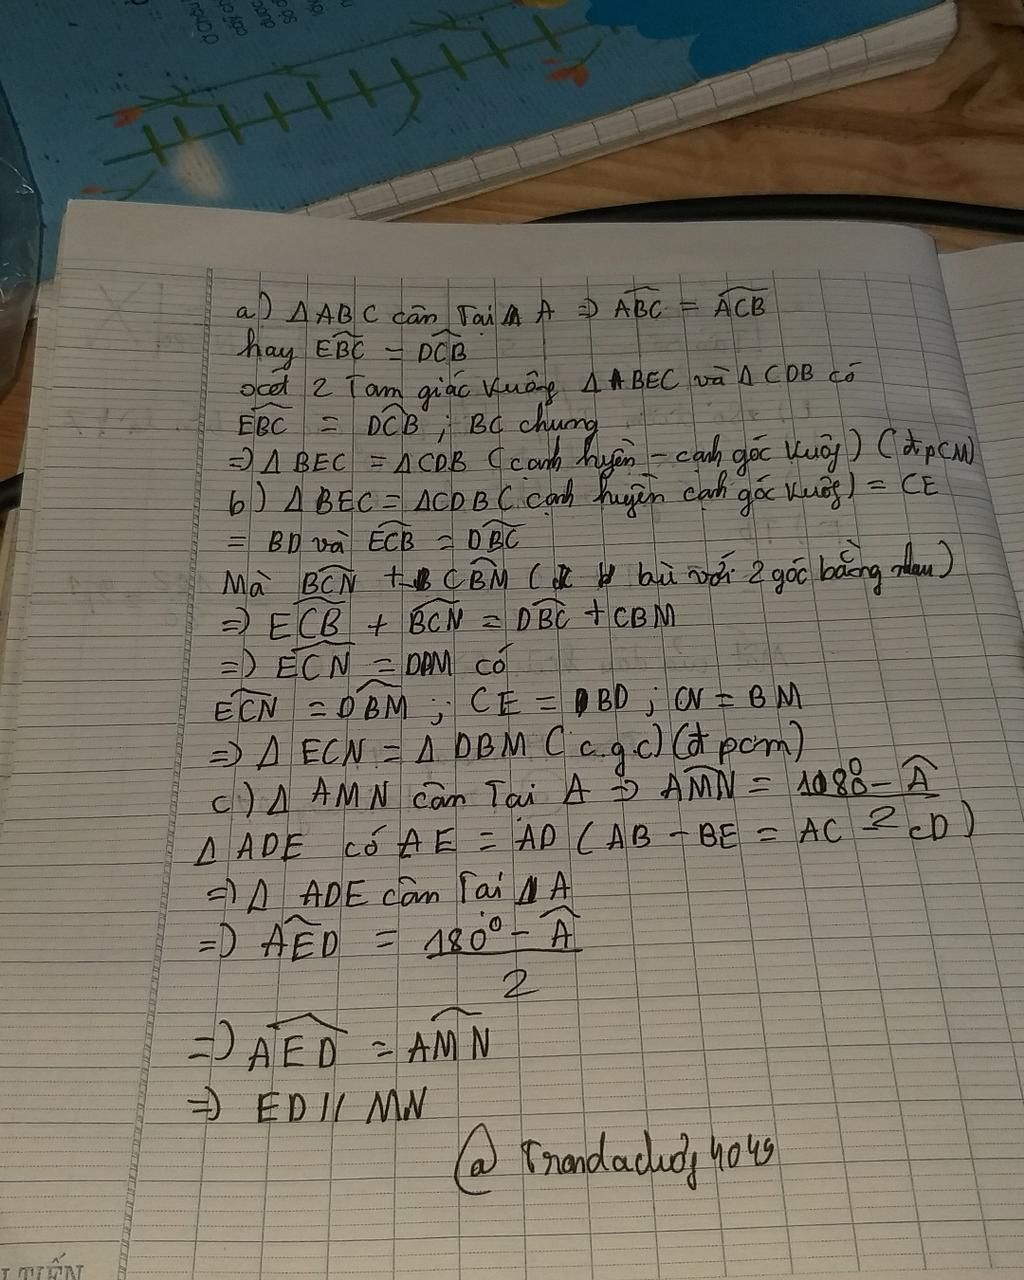 a) Δ ABC cân Tại A ⇒ \widehat{ABC} = \widehat{ACB}
hay \widehat{EBC} = \widehat{DCB}
xét 2 Tam giác vuông Δ BEC và Δ CDB có
\widehat{EBC} = \widehat{DCB} ; BC chung
⇒ Δ BEC = Δ CDB (cạnh huyền - cạnh góc vuông) (đpCM)
b) Δ BEC = Δ CDB (cạnh huyền cạnh góc vuông) = CE
= BD và \widehat{ECB} = \widehat{DBC}
Mà \widehat{BCN} + \widehat{CBM} ( bù với 2 góc bằng nhau)
⇒ \widehat{ECB} + \widehat{BCN} = \widehat{DBC} + CBM
⇒ \widehat{ECN} = DBM có
\widehat{ECN} = \widehat{DBM} ; CE = BD ; CN = BM
⇒ Δ ECN = Δ DBM (c.g c) (đ pcm)
c) Δ AMN cân Tại A ⇒ \widehat{AMN} = 180° - \widehat{A}
2
Δ ADE có AE = AD (AB - BE = AC - CD)
⇒ Δ ADE cân Tại A
⇒ \widehat{AED} = 180° - \widehat{A}
2
⇒ \widehat{AED} = \widehat{AMN}
⇒ ED // MN
TIẾN